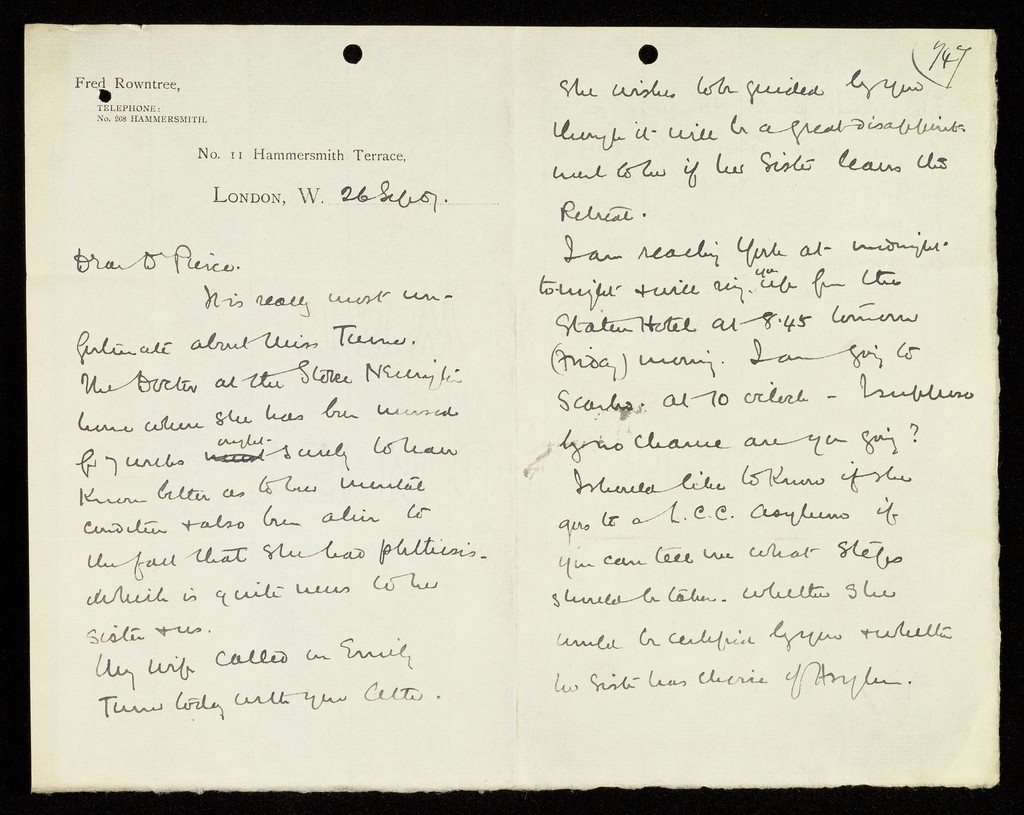 Fred Rowntree,
TELEPHONE:
No. 268 HAMMERSMITH.
No. 11 Hammersmith Terrace,
LONDON, W. 26 Sep 07.
Dear Dr Pierce.
It is really most un-
fortunate about Miss Turner.
The Doctor at the Stoke Newington
home where she has been nursed
for 7 weeks ought surely to have
known better as to her mental
condition & also been alive to
the fact that she had phthisis -
which is quite news to her
sister & us.
My wife called on Emily
Turner today with your letter.
747
She wishes to be guided by you
though it will be a great disappoint-
ment to her if her Sister leaves the
Retreat.
I am reaching York at midnight
to-night & will ring you up from the
Station Hotel at 8.45 tomorrow
(Friday) morning. I am going to
Scarbro. at 10 o'clock - I suppose
by no chance are you going?
I should like to know if she
goes to a L.C.C. Asylum if
you can tell me what steps
should be taken. whether she
would be certified by you & whether
her Sister has choice of Asylum.